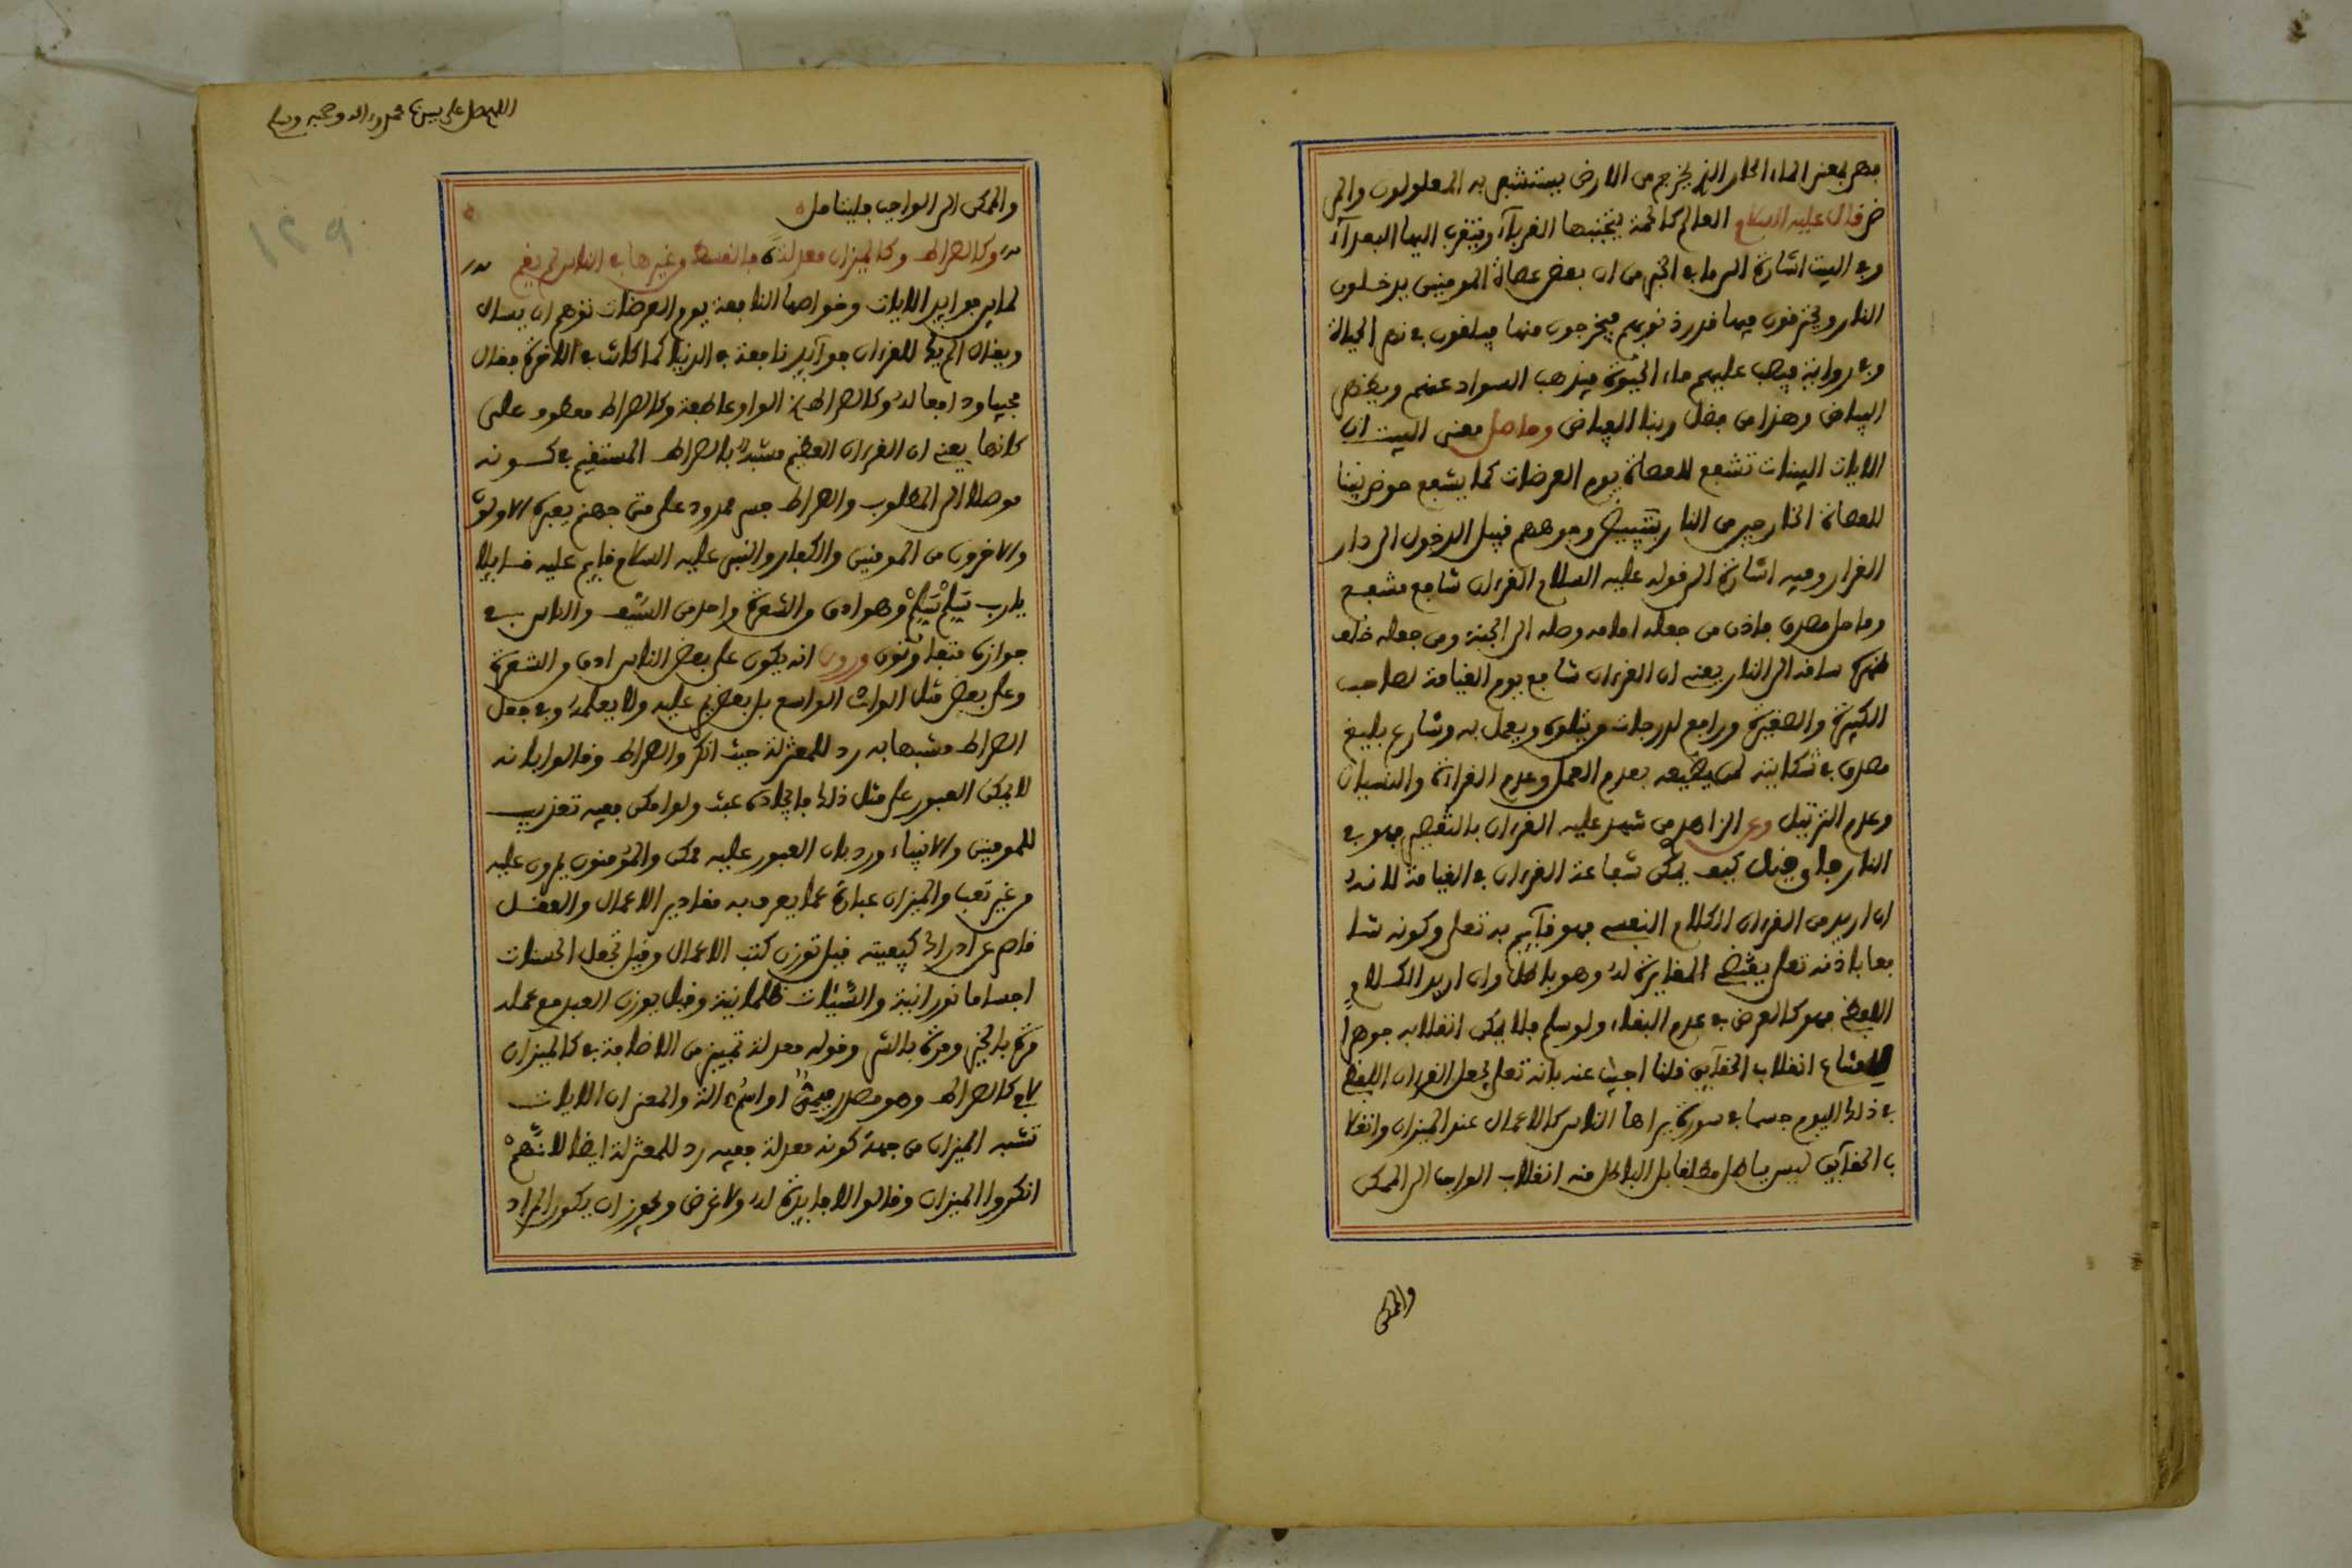 فهى بمعنى الماء الحار الذى يخرج من الارض يستشفى به المعلولون والمر
ضى قال عليه السلام العالم كالحمة يتجنبها القرباء ويتقرب اليها البعداء
وفى البيت اشارة الى ما فى الخبر من ان بعض عصاة المومنين يدخلون
النار ويحترقون فيها قدر ذنوبهم فيخرجون منها فيلقون فى نهر الحياة
وفى رواية فيصب عليهم ماء الحيوة فيذهب السواد عنهم ويظهر
البياض وهذا من فضل ربنا الفياض وحاصل معنى البيت ان
الايات البينات تشفع للعصاة يوم العرضات كما يشفع حوض نبينا
للعصاة الخارجين من النار بتبييض وجوههم قبيل الدخول الى دار
القرار وفيه اشارة الى قوله عليه السلام القرءان شافع مشفع
وماحل مصدق فاذن من جعله امامه وصله الى الجنة ومن جعله خلف
ظهره ساقه الى النار يعنى ان القرءان شافع يوم القيامة لصاحب
الكبيرة والصغيرة ورافع لدرجات من يتلوه ويعمل به وشارع بليغ
مصدق فى شكايته لمن يضيعه بعدم العمل وعدم القراءة والنسيان
وعدم الترتيل وعن الزاهد من شهد عليه القرءان بالتقصير فهو فى
النار فان قيل كيف يمكن شفاعة القرءان فى القيامة لانه
ان اريد من القرءان الكلام النفسى فهو قآيم به تعلى وكونه شا
فعا باذنه تعلى يقتضى المغايرة له وهو باطل وان اريد الكلام
اللفظى فهو كالعرض فى عدم البقاء ولو سلم فلا يمكن انقلابه جوهرا
لامتناع انقلاب الحقآيق قلنا اجيب عنه بانه تعلى يجعل القرءان اللفظى
فى ذلك اليوم جسما فى سورة يراها الناس كالاعمال عند الميزان وانقلا
ب الحقآيق ليس باطل مطلقا بل الباطل منه انقلاب الواجب الى الممكن
والممكن
اللهم صل على سيدنا محمد وءاله وصحبه وسلم
١٢٩
والممكن الى الواجب فليتامل
وكالصراط وكالميزان معدلة فالقسط من غيرها فى الناس لم يقم
لما بين فوايد الايات وخواصها النافعة يوم العرضات توهم ان يسال
ويقال الم يك للقرءان فوآيد نافعة فى الدنيا كما كانت فى الاخرة فقال
مجيبا ودافعا له وكالصراط الواو عاطفة وكالصراط معطوف على
كانها يعنى ان القرءان العظيم مشبه بالصراط المستقيم فى كونه
موصلا الى المطلوب والصراط جسر ممدود على متن جهنم يعبره الاولون
والاخرون من المومنين والكفار والنبى عليه السلام قايم عليه قسايلا
يارب سلم سلم وهو ادق من الشعرة واحد من السيف والناس فى
جوازه متفاوتون وروى انه يكون على بعض الناس ادق من الشعرة
وعلى بعض مثل الواد الواسع بل بعضهم يمر عليه ولا يعلمه وفى جعل
الصراط مشبها به رد للمعتزلة حيث انكروا الصراط وقالوا بانه
لا يمكن العبور على مثل ذلك فايجاده عبث ولو امكن ففيه تعذيب
للمومنين والانبياء ورد بان العبور عليه ممكن والمؤمنون يمرون عليه
من غير تعب والميزان عبارة عما يعرف به مقادير الاعمال والعقل
قاصر عن ادراك كيفيته قيل توزن كتب الاعمال وقيل تجعل الحسنات
اجساما نورانية والسيئات ظلمانية وقيل يوزن العبد مع عمله
مرة بالخير ومرة بالشر وقوله معدلة تمييز من الاضافة فى كالميزان
لا فى كالصراط وهو مصدر ميمى او اسم ءالة والمعنى ان الايات
تشبه الميزان من جهة كونه معدلة ففيه رد للمعتزلة ايضا لانهم
انكروا الميزان وقالوا لا فايدة له ولا غرض ويجوز ان يكون المراد